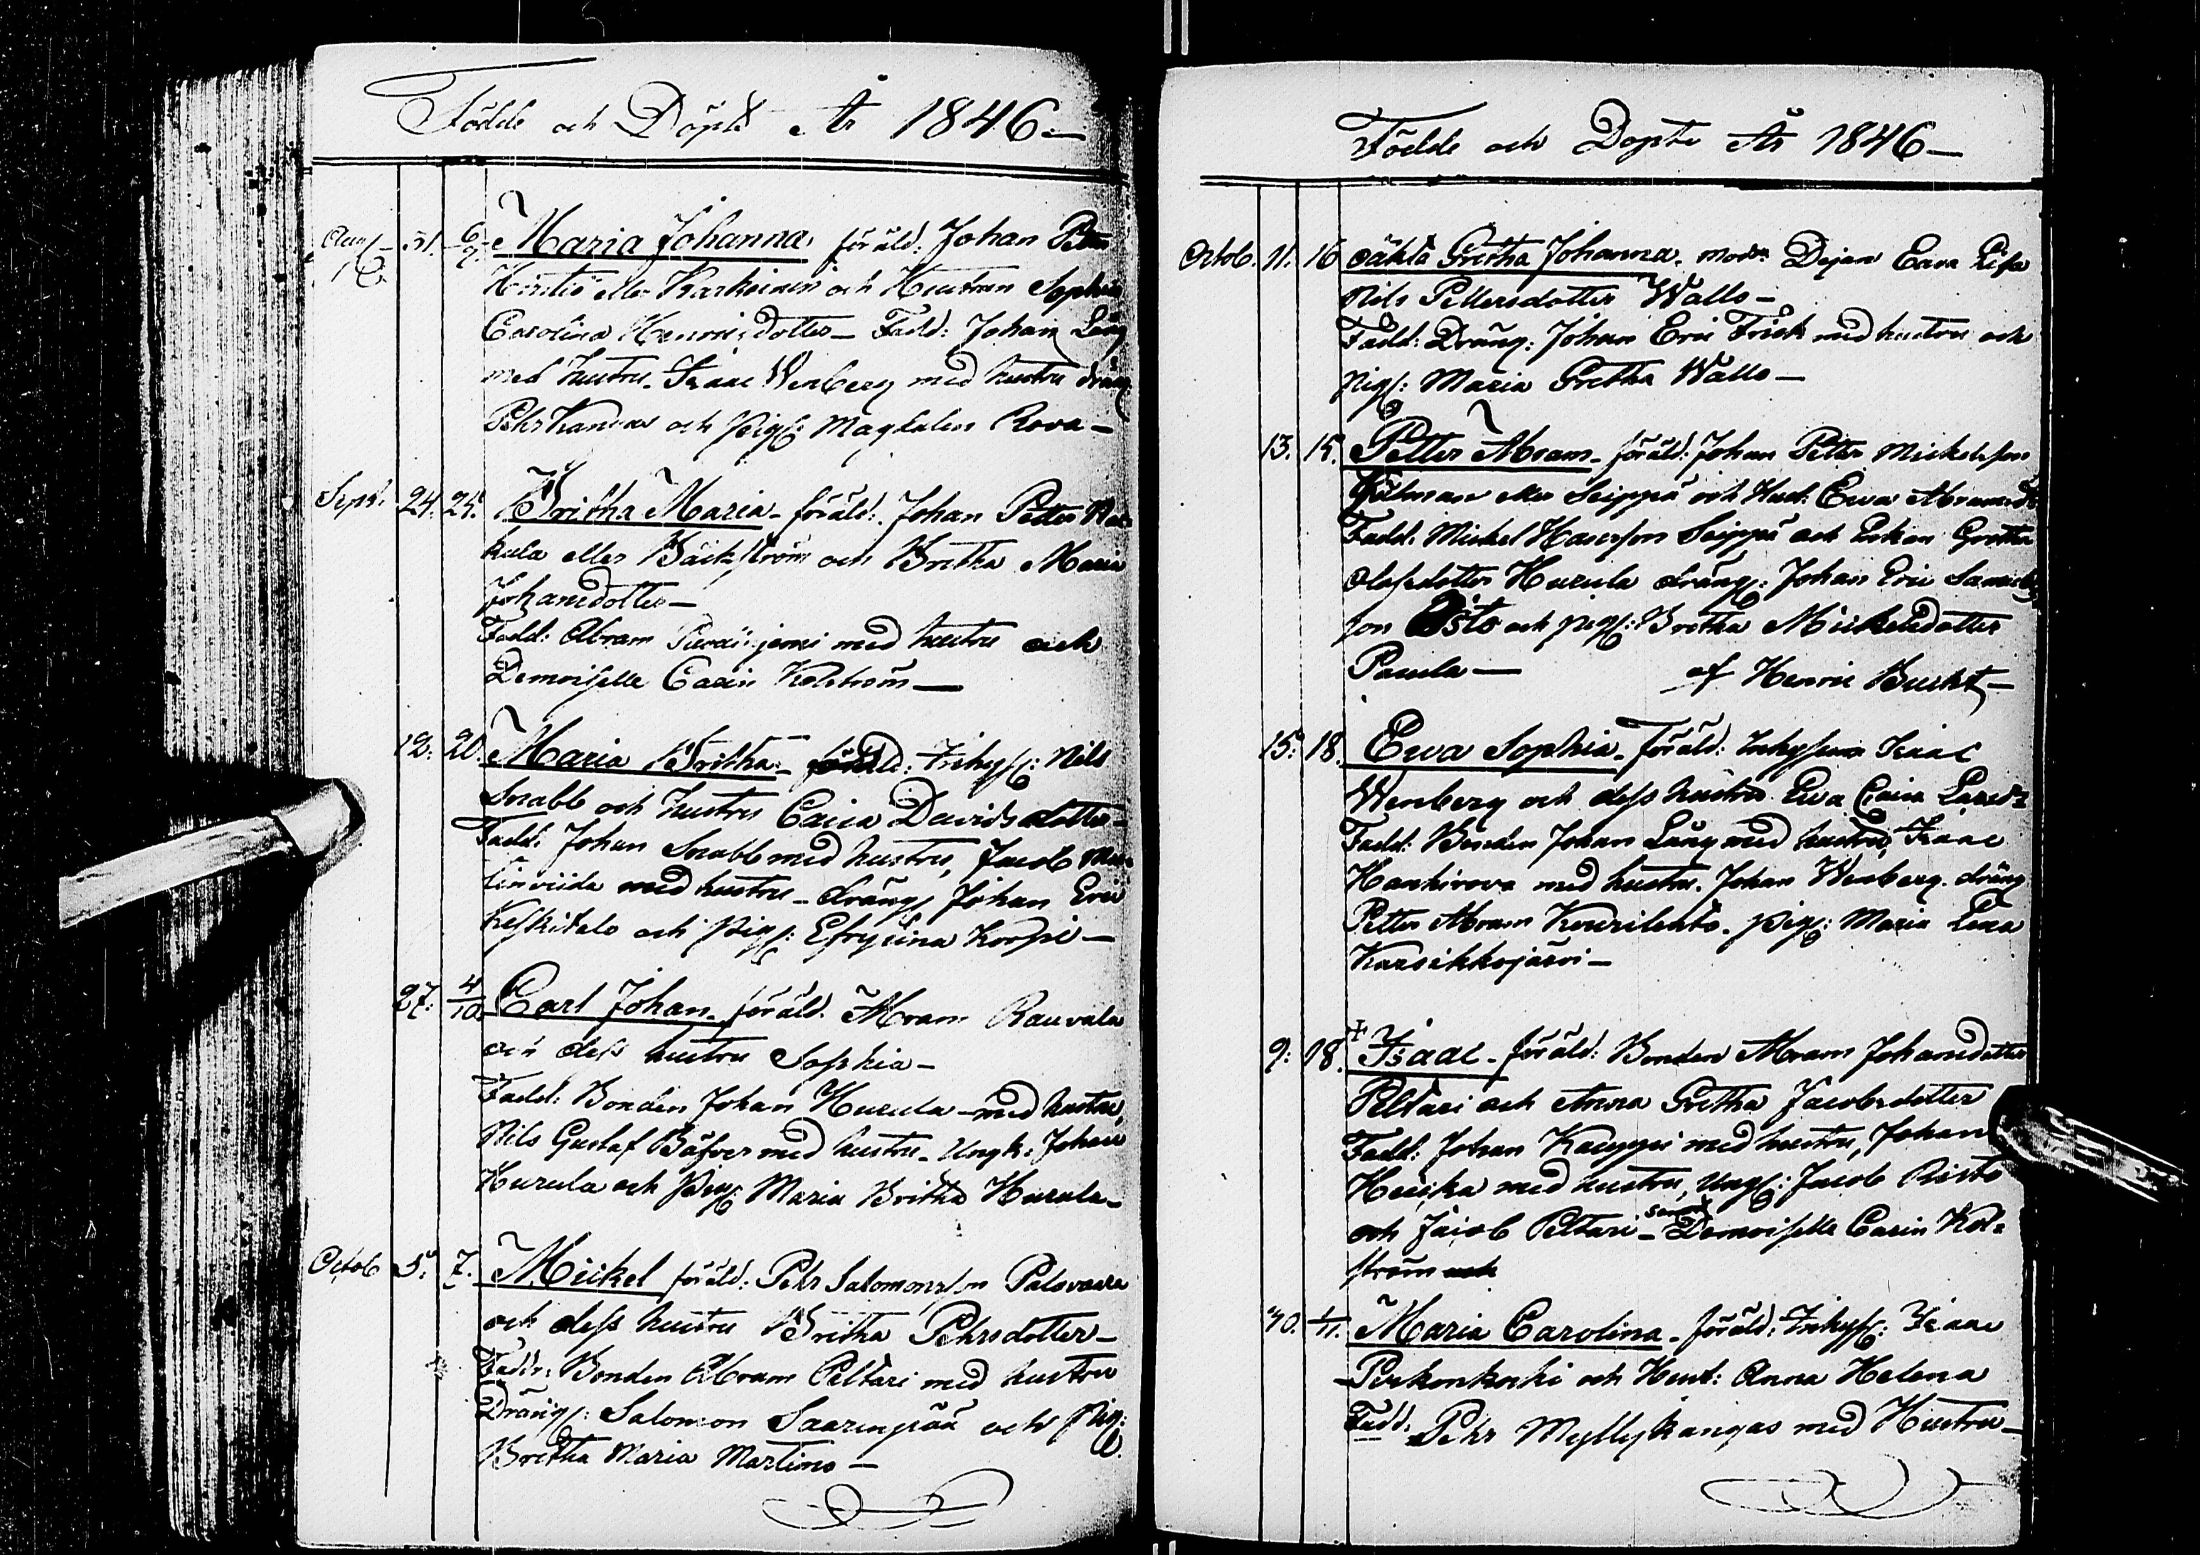 Födde och Döpte År 1846
Aug 31. 6/9. Maria Johanna. föräld. Johan Petter
eller Karkoinen och Hustrun Sophia
Carolina Henricsdotter – Fadd: Johan Lång
med hustru. Isaac Wenberg med hustru dräng
Pehr Kangas och Pig: Magdalen Rova –
Sept. 24. 25. Britha Maria – föräld. Johan Petter
kula eller Bäckström och Britha Maria
Johansdotter –
Fadd: Abram med hustru och
Demoiselle Carin Kolström –
12. 20. Maria Britha – föräld: Inhys: Nils
Snabb och hustru Cajsa Davidsdotter –
Fadd: Johan Snabb med hustru, Jacob
med hustru – dräng Johan Eric
Keskitalo och Pig: Efrosina Korpi –
27. 4/10. Carl Johan – föräld. Abram Rauvala
och dess hustru Sophia –
Fadd: Bonden Johan Hurula – med hustru,
Nils Gustaf Bäfver med hustru – Ungk: Johan
Hurula och Pig: Maria Britha Hurula –
Octob 5. 7. Mickel föräld: Pehr Salomonsson Palovaara
och dess hustru Britha Pehrsdotter –
Faddr: Bonden Abram Peltari med hustru
Dräng: Salomon Saarenpää och Pig:
Britha Maria Martimo –
Födde och Döpte År 1846 –
Octob. 11. 16 oäkta Gretha Johanna. modr. Dejan Eava Lisa
Nils Pettersdotter Wallo –
Fadd: Dräng: Johan Eric Frisk med hustru och
Pig: Maria Gretha Wallo –
13. 15. Petter Abram – föräld: Johan Petter Mickelsson
eller Seippä och Hust: Ewa Abramsd:
Fadd: Mickel Hansson Seippä och Enkan Gretha
Olofsdotter Hurula dräng: Johan Eric Samuels
son och pig: Britha Mickelsdotter
Paula – af Henric Bucht –
15. 18. Ewa Sophia – föräld: Inhyses Isaac
Wenberg och dess hustru Eva Caisa Larsd:
Fadd: Bonden Johan Lång med hustru, Isaac
Harkirova med hustru. Johan Wenberg. dräng
Petter Abram Kourilehto. pig: Maria Lena
Karsikkojärvi –
9. 18. + Isaac – föräld: Bonden Abram Johansdotter
Peltari och Anna Gretha Jacobsdotter
Fadd: Johan Kauppi med hustru, Johan
Heikka med hustru, Ung: Jacob Risto
och Jacob Peltari – samt Demoiselle Carin Kol=
ström och
30. 1/11. Maria Carolina – föräld: Inhys: Isaac
Pirkonkoski och Hust: Anna Helena
Fadd: Pehr Myllykangas med Hustru –